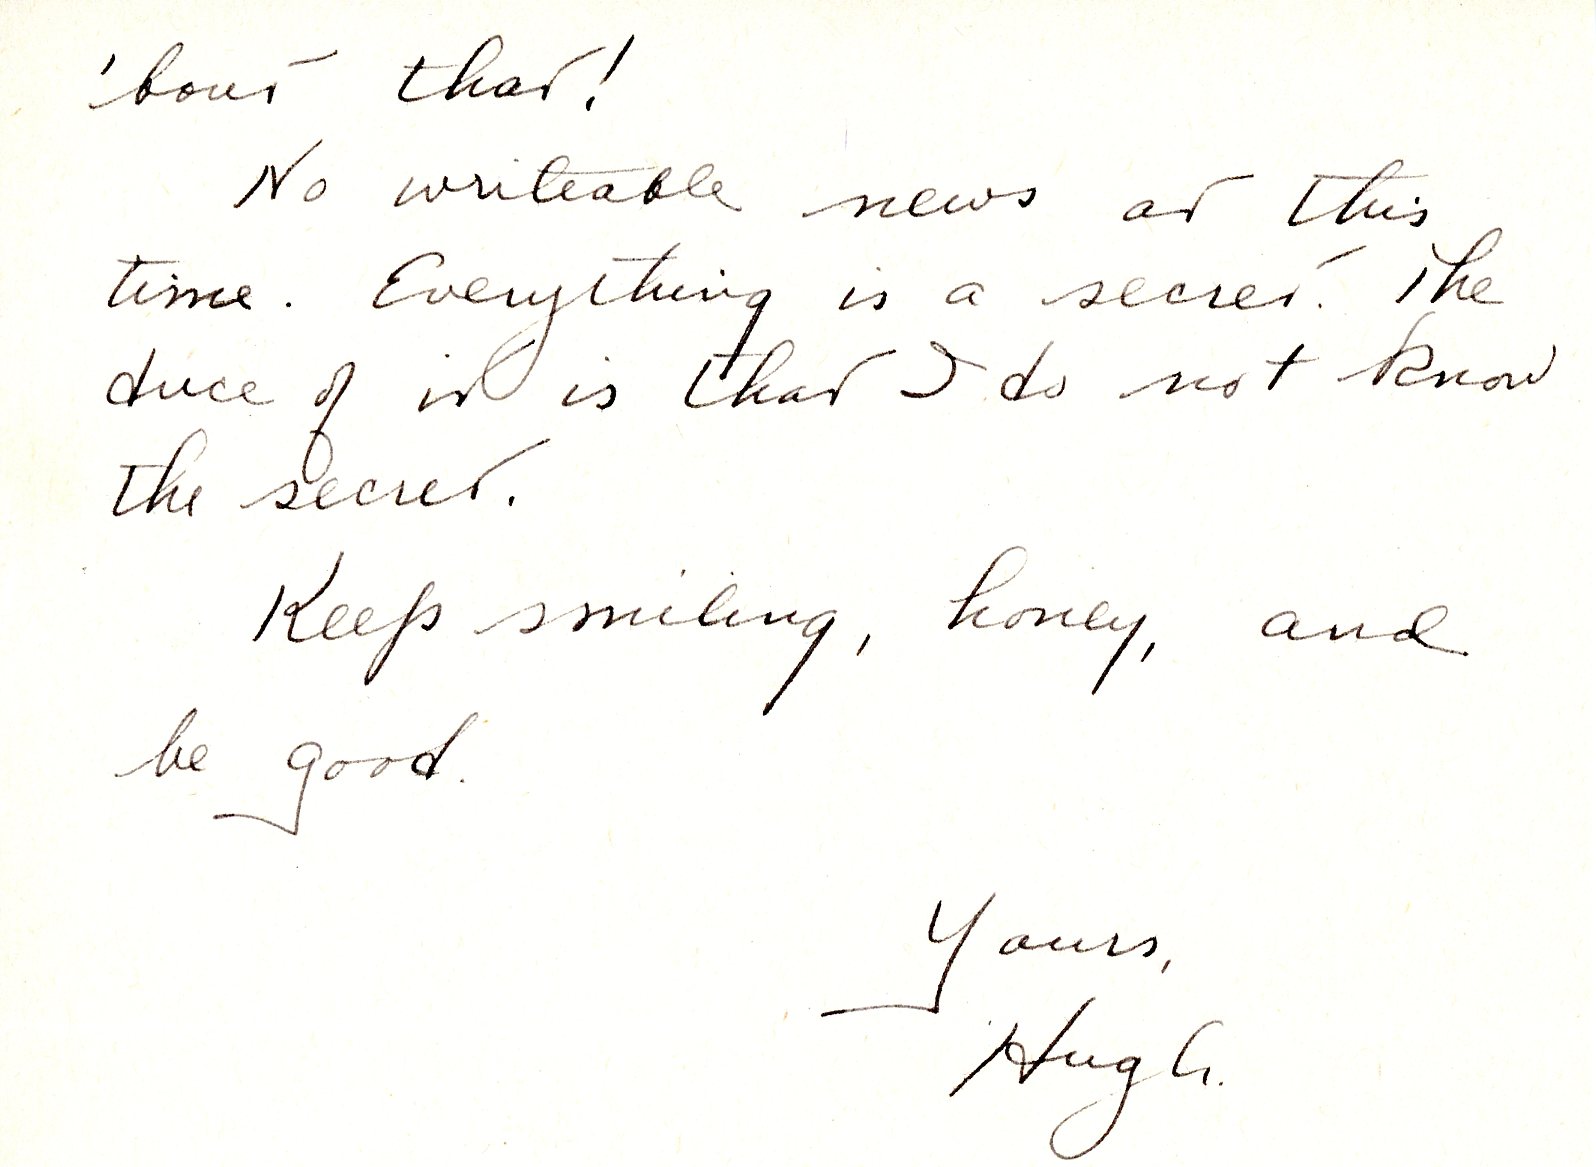 'bout that!
No writeable news at this
time. Everything is a secret. The
duce of it is that I do not know
the secret.
Keep smiling, honey, and
be good.
Yours,
Hugh.